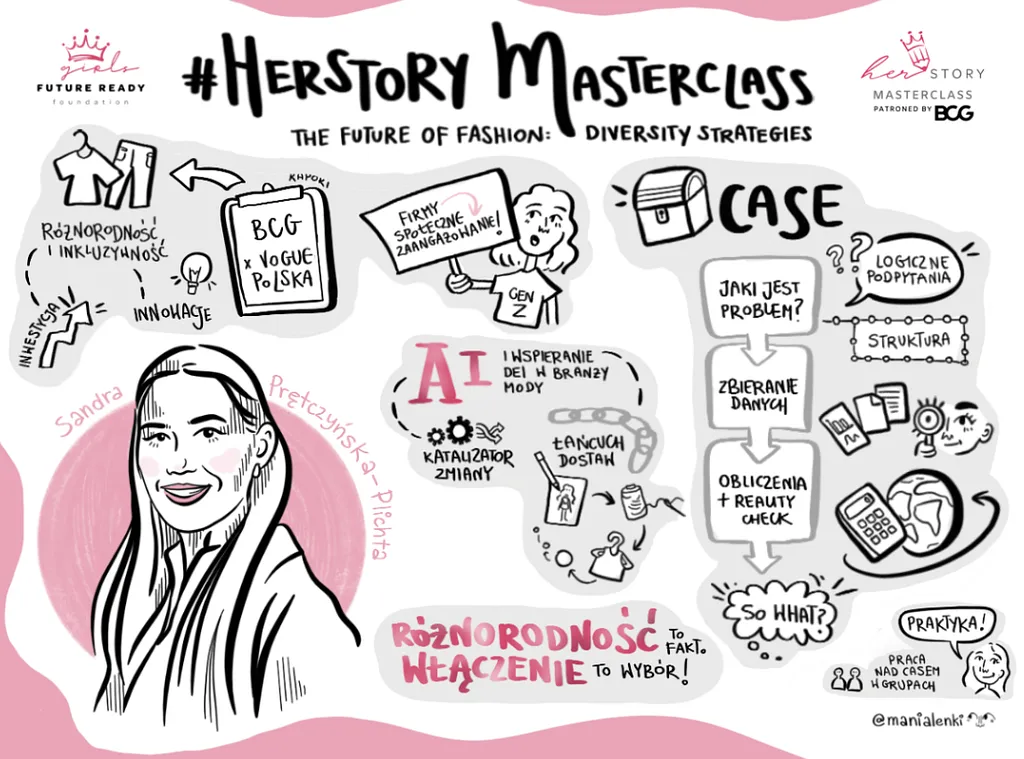 girls
FUTURE READY
foundation
#HERSTORY MASTERCLASS
THE FUTURE OF FASHION: DIVERSITY STRATEGIES
her STORY
MASTERCLASS
PATRONED BY BCG
RÓŻNORODNOŚĆ
I INKLUZYWNOŚĆ
INWESTYCJA
INNOWACJE
BCG
x VOGUE
POLSKA
FIRMY
SPOŁECZNE
ZAANGAŻOWANIE!
GEN
Z
CASE
JAKI JEST
PROBLEM?
ZBIERANIE
DANYCH
OBLICZENIA
+ REALITY
CHECK
SO WHAT?
LOGICZNE
PODPYTANIA
STRUKTURA
Sandra
Prętczyńska-Plichta
AI
I WSPIERANIE
DEI W BRANŻY
MODY
KATALIZATOR
ZMIANY
ŁAŃCUCH
DOSTAW
RÓŻNORODNOŚĆ TO FAKT.
WŁĄCZENIE TO WYBÓR!
PRAKTYKA!
PRACA
NAD CASEM
W GRUPACH
@manialenki